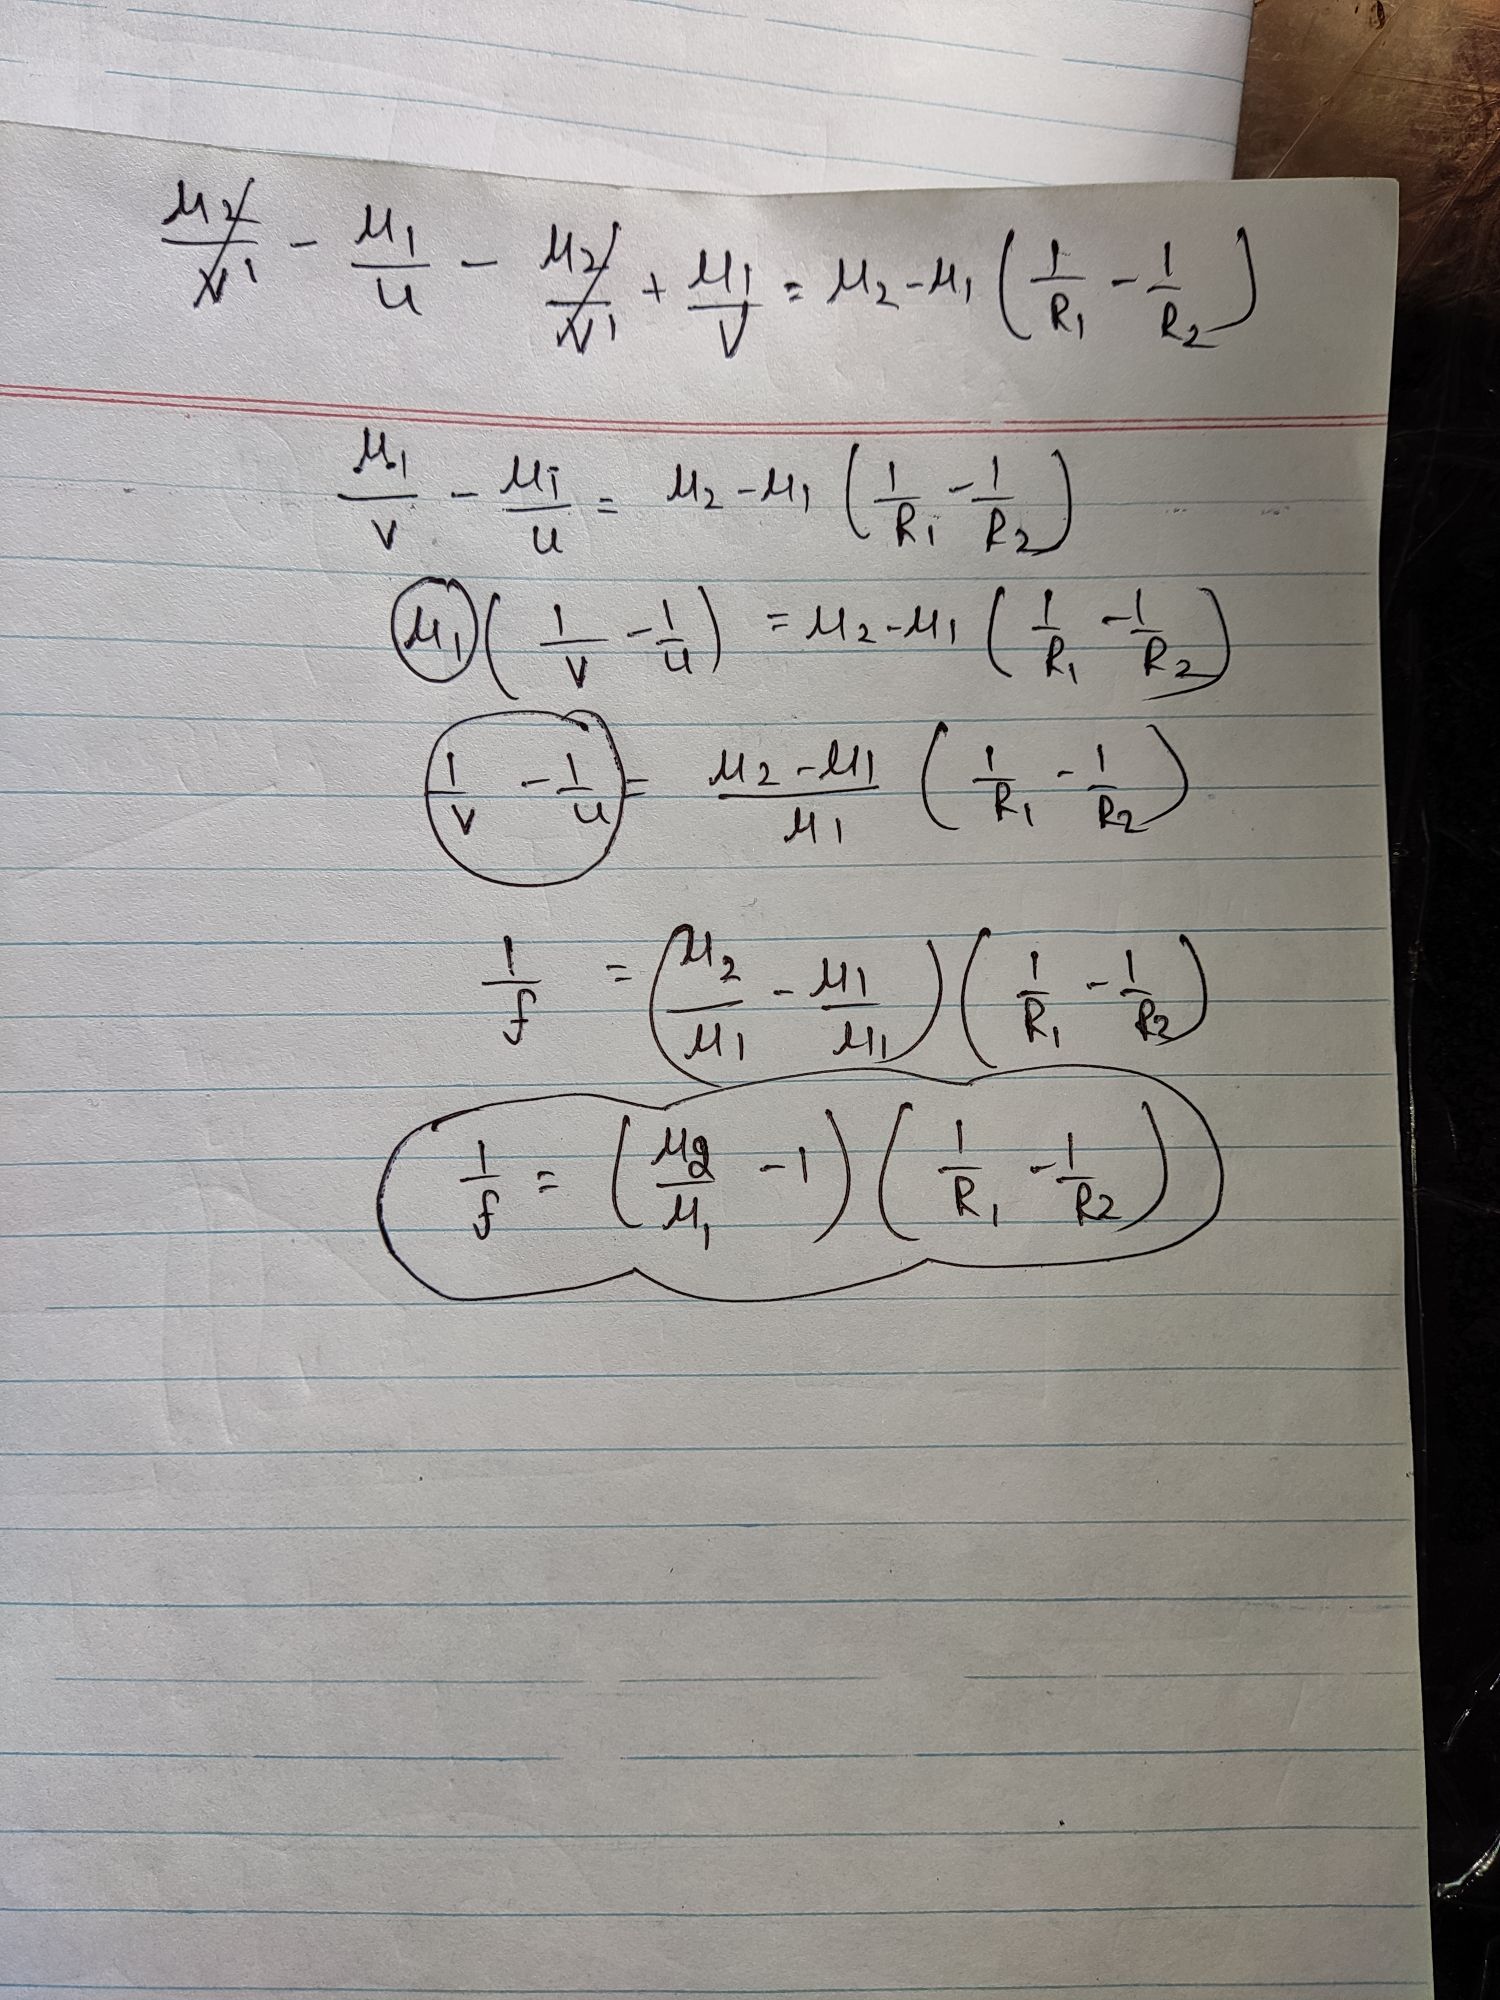 μ2/v¹ - μ1/u - μ2/v¹ + μ1/v = μ2-μ1 (1/R1 - 1/R2)
μ1/v - μ1/u = μ2-μ1 (1/R1 - 1/R2)
μ1 (1/v - 1/u) = μ2-μ1 (1/R1 - 1/R2)
1/v - 1/u = μ2-μ1/μ1 (1/R1 - 1/R2)
1/f = (μ2/μ1 - μ1/μ1) (1/R1 - 1/R2)
1/f = (μ2/μ1 - 1) (1/R1 - 1/R2)